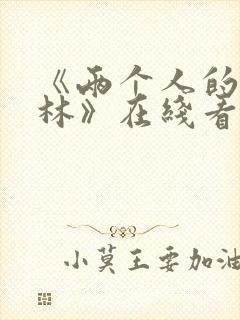 《两个人的
林》在线看
小莫王要加油